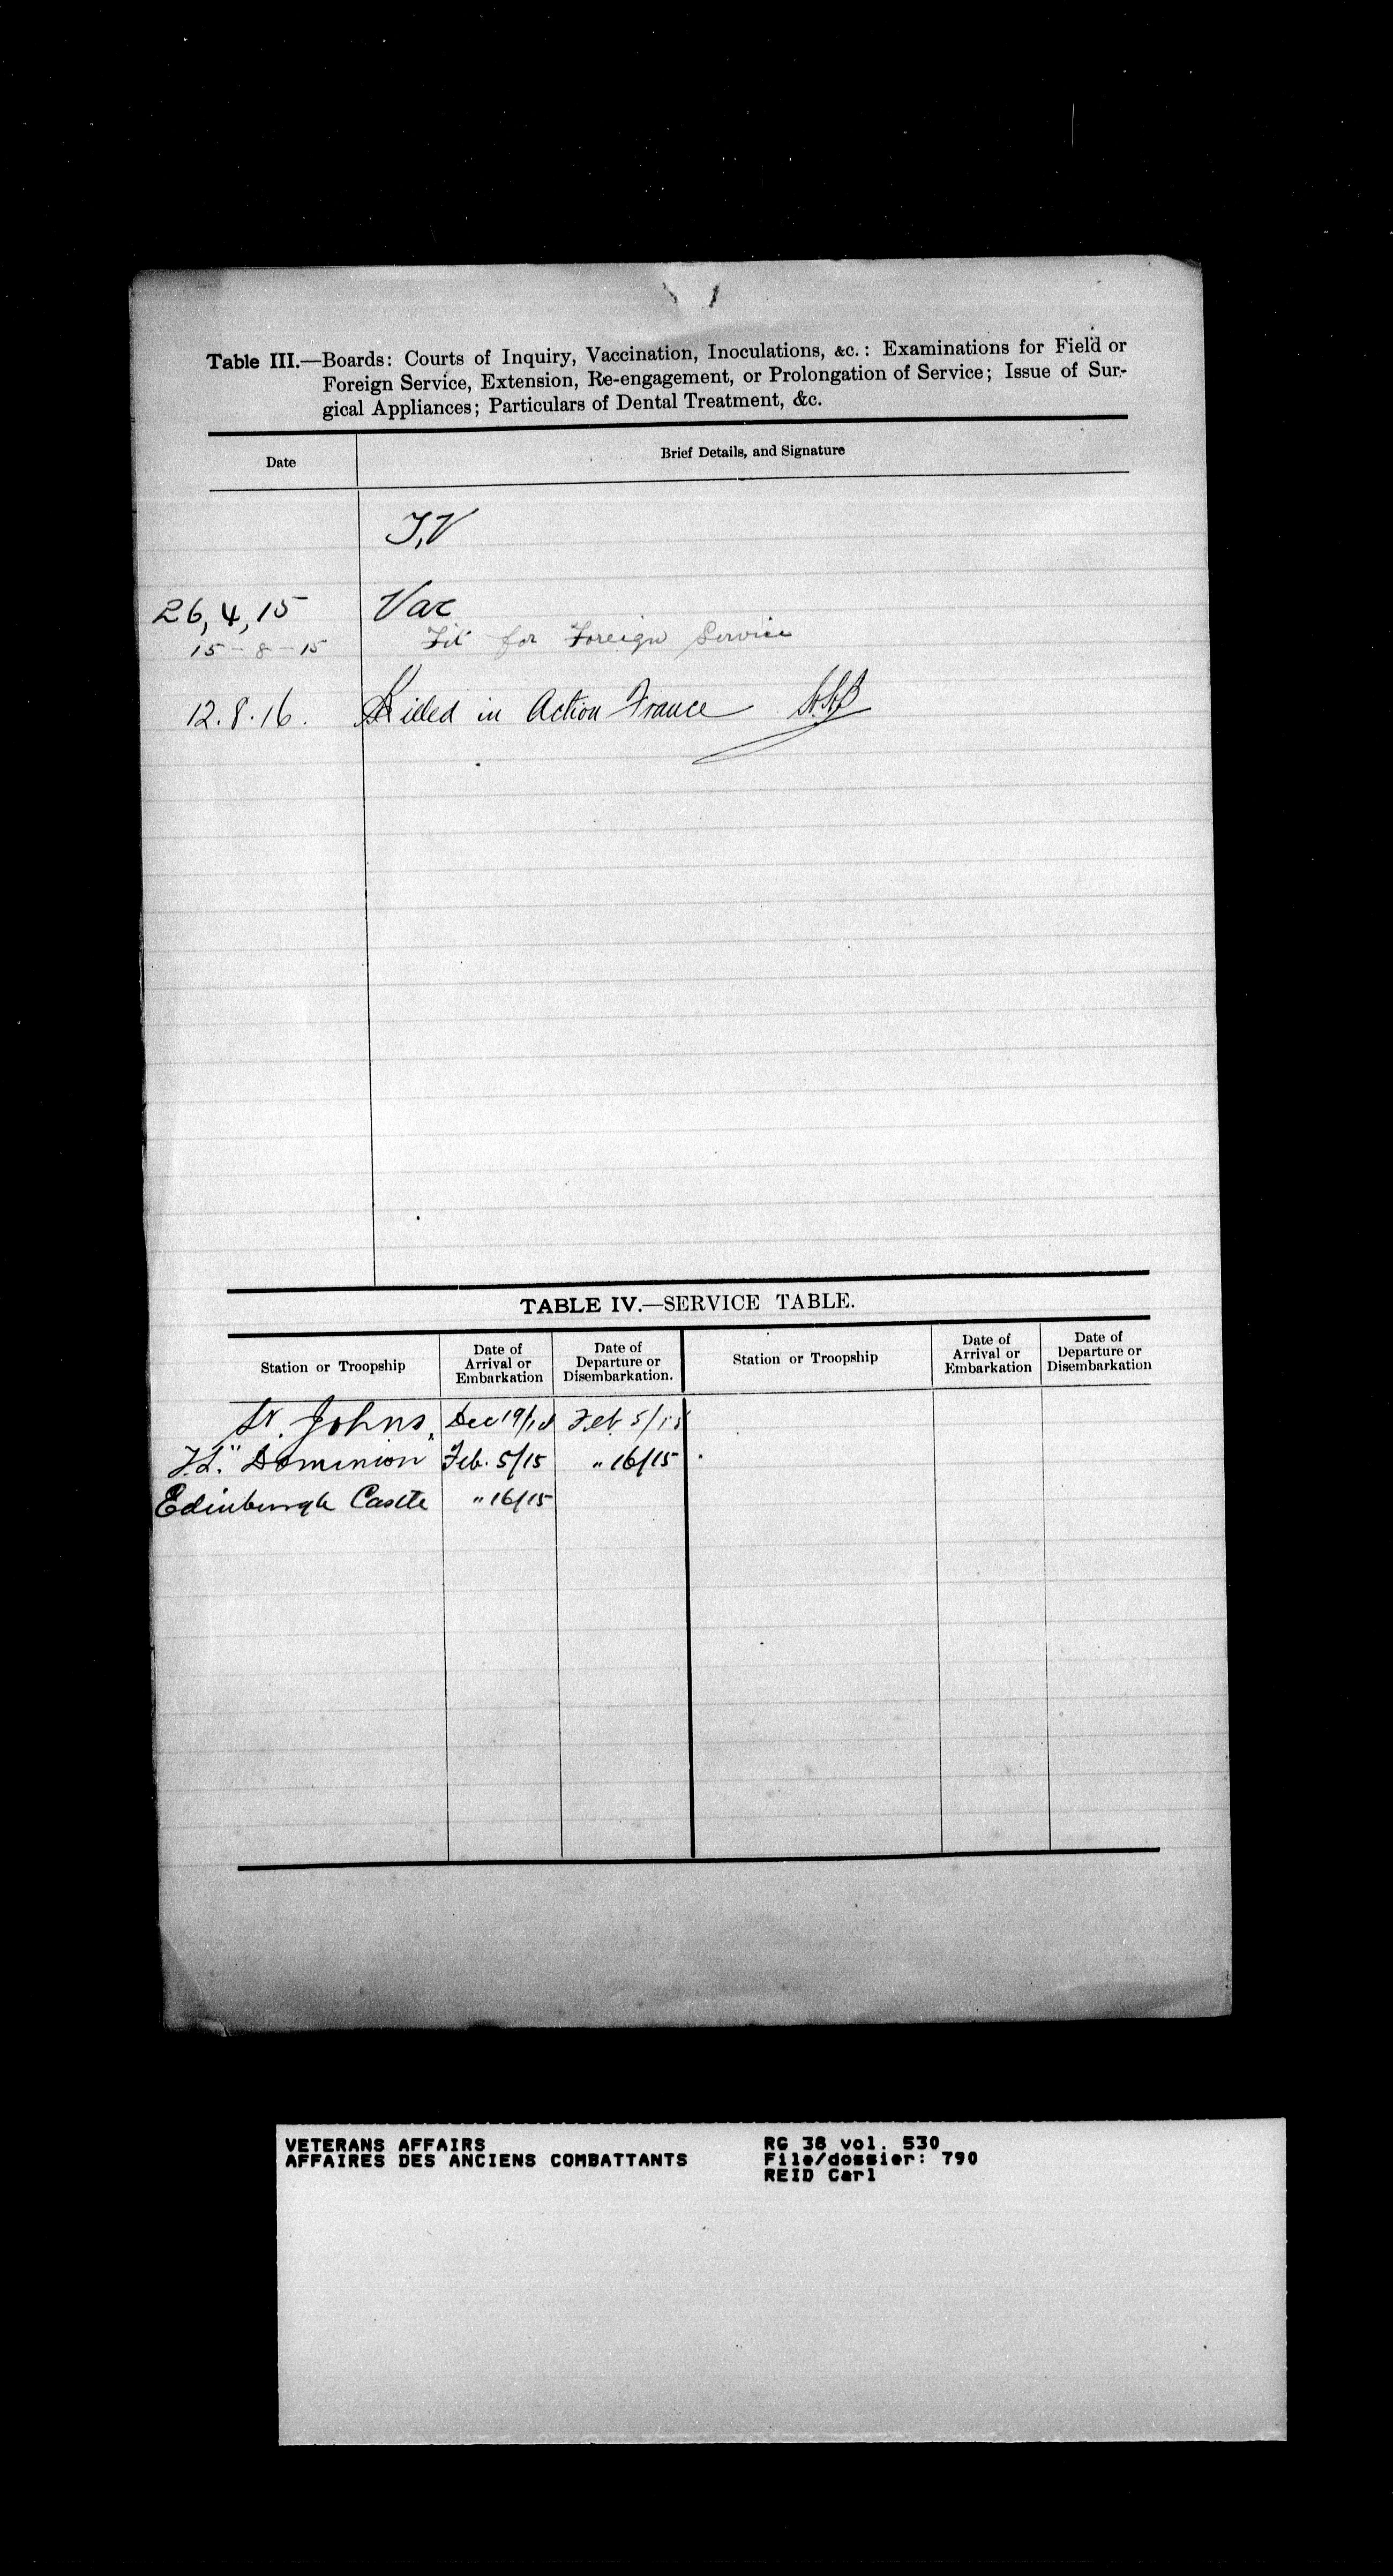 Table III.—Boards: Courts of Inquiry, Vaccination, Inoculations, &c.: Examinations for Field or
Foreign Service, Extension, Re-engagement, or Prolongation of Service; Issue of Sur-
gical Appliances; Particulars of Dental Treatment, &c.
Date Brief Details, and Signature
T,V
26,4,15 Vac
15-8-15 Fit for Foreign Service
12.8.16. Killed in Action France
TABLE IV.—SERVICE TABLE.
Station or Troopship Date of Arrival or Embarkation Date of Departure or Disembarkation. Station or Troopship Date of Arrival or Embarkation Date of Departure or Disembarkation
St. Johns, Dec 19/14 Feb 5/15
"Dominion" Feb. 5/15 " 16/15
Edinburgh Castle " 16/15
VETERANS AFFAIRS RG 38 vol. 530
AFFAIRES DES ANCIENS COMBATTANTS File/dossier: 790
REID Carl